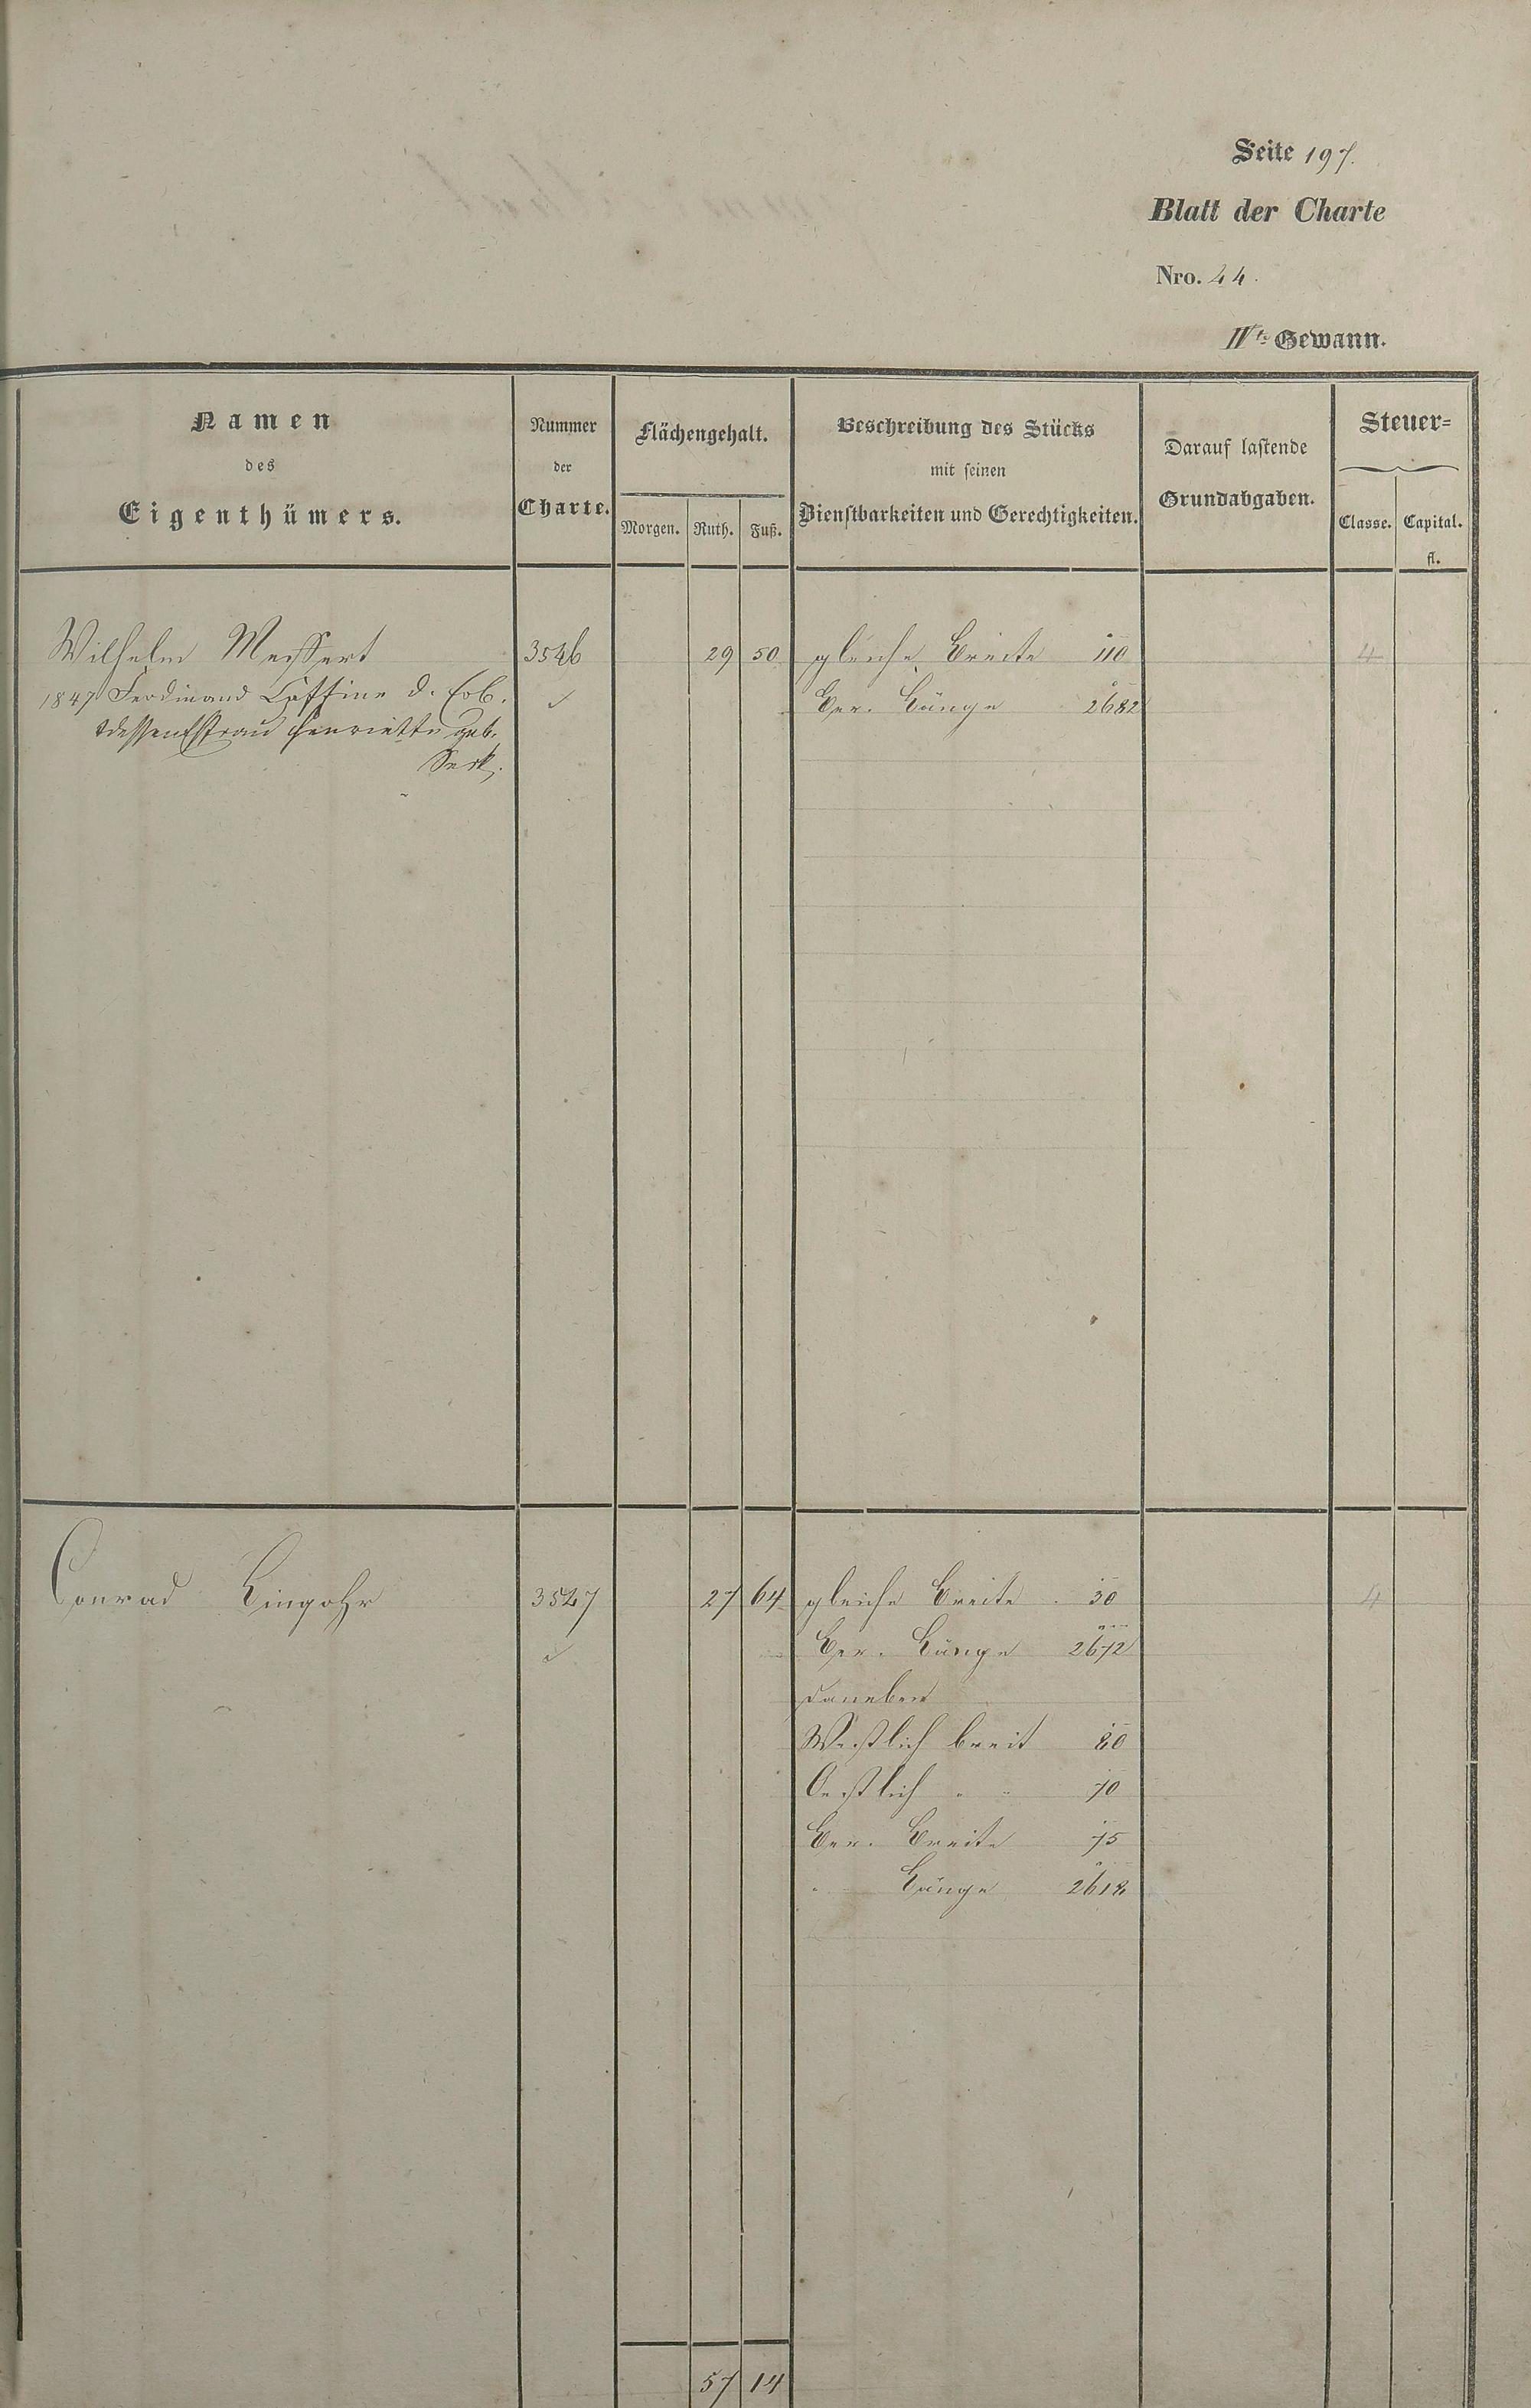 Seite 197.
Blatt der Charte
Nro. 44.
IVte Gewann.
Namen
des
Eigenthümers.
Nummer
der
Charte.
Flächengehalt.
Morgen. Ruth. Fuß.
Beschreibung des Stücks
mit seinen
Dienstbarkeiten und Gerechtigkeiten.
Darauf lastende
Grundabgaben.
Steuer=
Classe. Capital.
fl.
Wilhelm Meissert 3526 29 50 gleiche Breite 110 4
1847 Ferdinand d. Erb. Ger. Länge 2682
dessen Ehefrau Henriette geb.
Conrad Lingohr 3527 27 64 gleiche Breite . 30 4
Ger. Länge 2672
daneben
Westlich breit 80
Oestlich " " 70
Ger. Breite 75
" Länge 2618
57 14